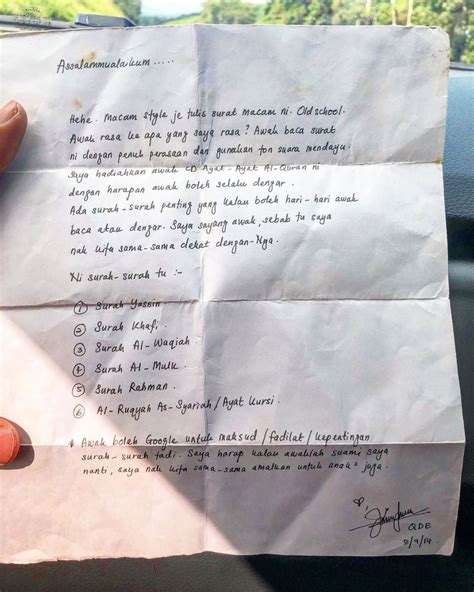 Assalammualaikum .....
Hehe. Macam style je tulis surat macam ni. Oldschool.
Awak rasa ke apa yang saya rasa? Awak baca surat
ni dengan penuh perasaan dan gunakan ton suara mendayu.
Saya hadiahkan awak CD Ayat-Ayat Al-Quran ni
dengan harapan awak boleh selalu dengar.
Ada surah-surah penting yang kalau boleh hari-hari awak
baca atau dengar. Saya sayang awak, sebab tu saya
nak kita sama-sama dekat dengan-Nya.
Ni surah-surah tu :-
① Surah Yassin
② Surah Khafi.
③ Surah Al-Waqiah.
④ Surah Al-Mulk.
⑤ Surah Rahman.
⑥ Al-Ruqyah As-Syariah/Ayat Kursi.
* Awak boleh Google untuk maksud/fadilat/kepentingan
surah-surah tadi. Saya harap kalau awaklah suami saya
nanti, saya nak kita sama-sama amalkan untuk anak² juga.
QDE